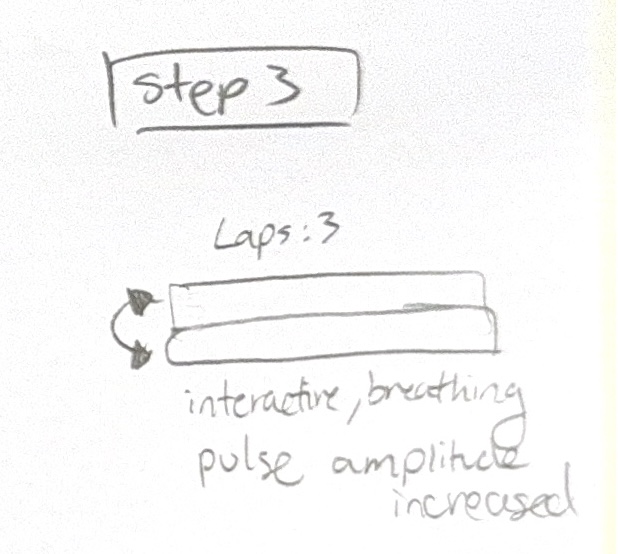 step 3
Laps: 3
interactive, breathing
pulse amplitude
increased